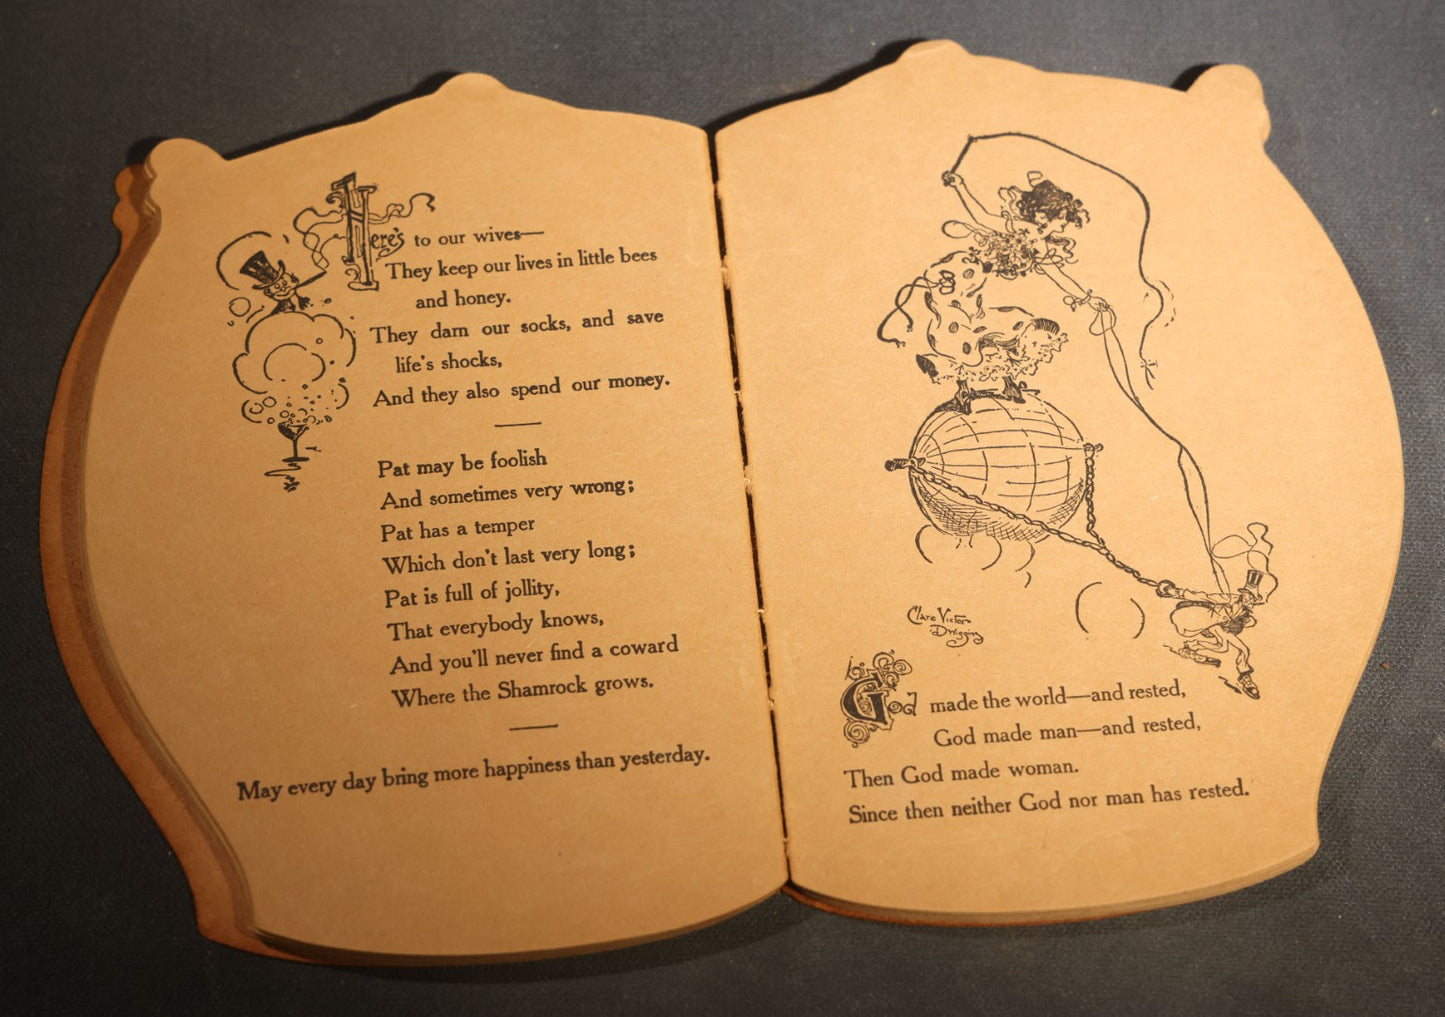 Here's to our wives—
They keep our lives in little bees
and honey.
They darn our socks, and save
life's shocks,
And they also spend our money.
Pat may be foolish
And sometimes very wrong;
Pat has a temper
Which don't last very long;
Pat is full of jollity,
That everybody knows,
And you'll never find a coward
Where the Shamrock grows.
May every day bring more happiness than yesterday.
Clare Victor
Dwiggins
God made the world—and rested,
God made man—and rested,
Then God made woman.
Since then neither God nor man has rested.